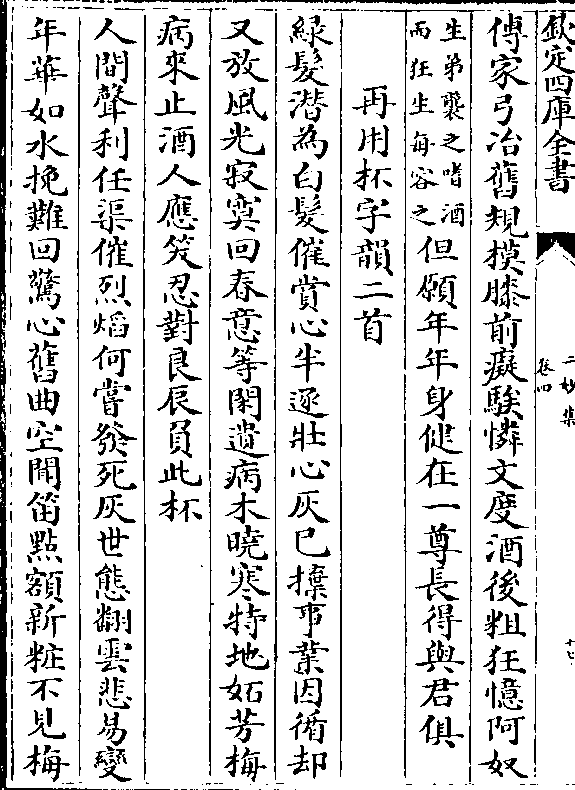 欽定四庫全書
二妙集
卷四
傳家弓冶舊規模膝前癡騃憐文度酒後粗狂憶阿奴
生弟襲之嗜酒
而狂生每容之
但願年年身健在一尊長得與君俱
再用杯字韻二首
緑髮潛為白髮催賞心半逐壯心灰已攓事業因循却
又放風光寂寞回春意等閑遺病木曉寒特地妬芳梅
病來止酒人應笑忍對良辰負此杯
人間聲利任渠催烈熖何嘗發死灰世態翻雲悲易變
年華如水挽難回驚心舊曲空聞笛點額新粧不見梅